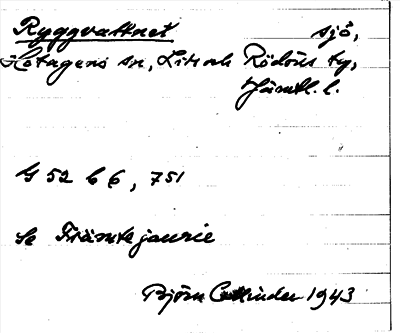 Ryggvattnet sjö,
Hotagens sn, Lits och Rödöns tg,
Jämtl. l.
G 52 b 6, 751
Se jaurie
Björn Collinder 1943